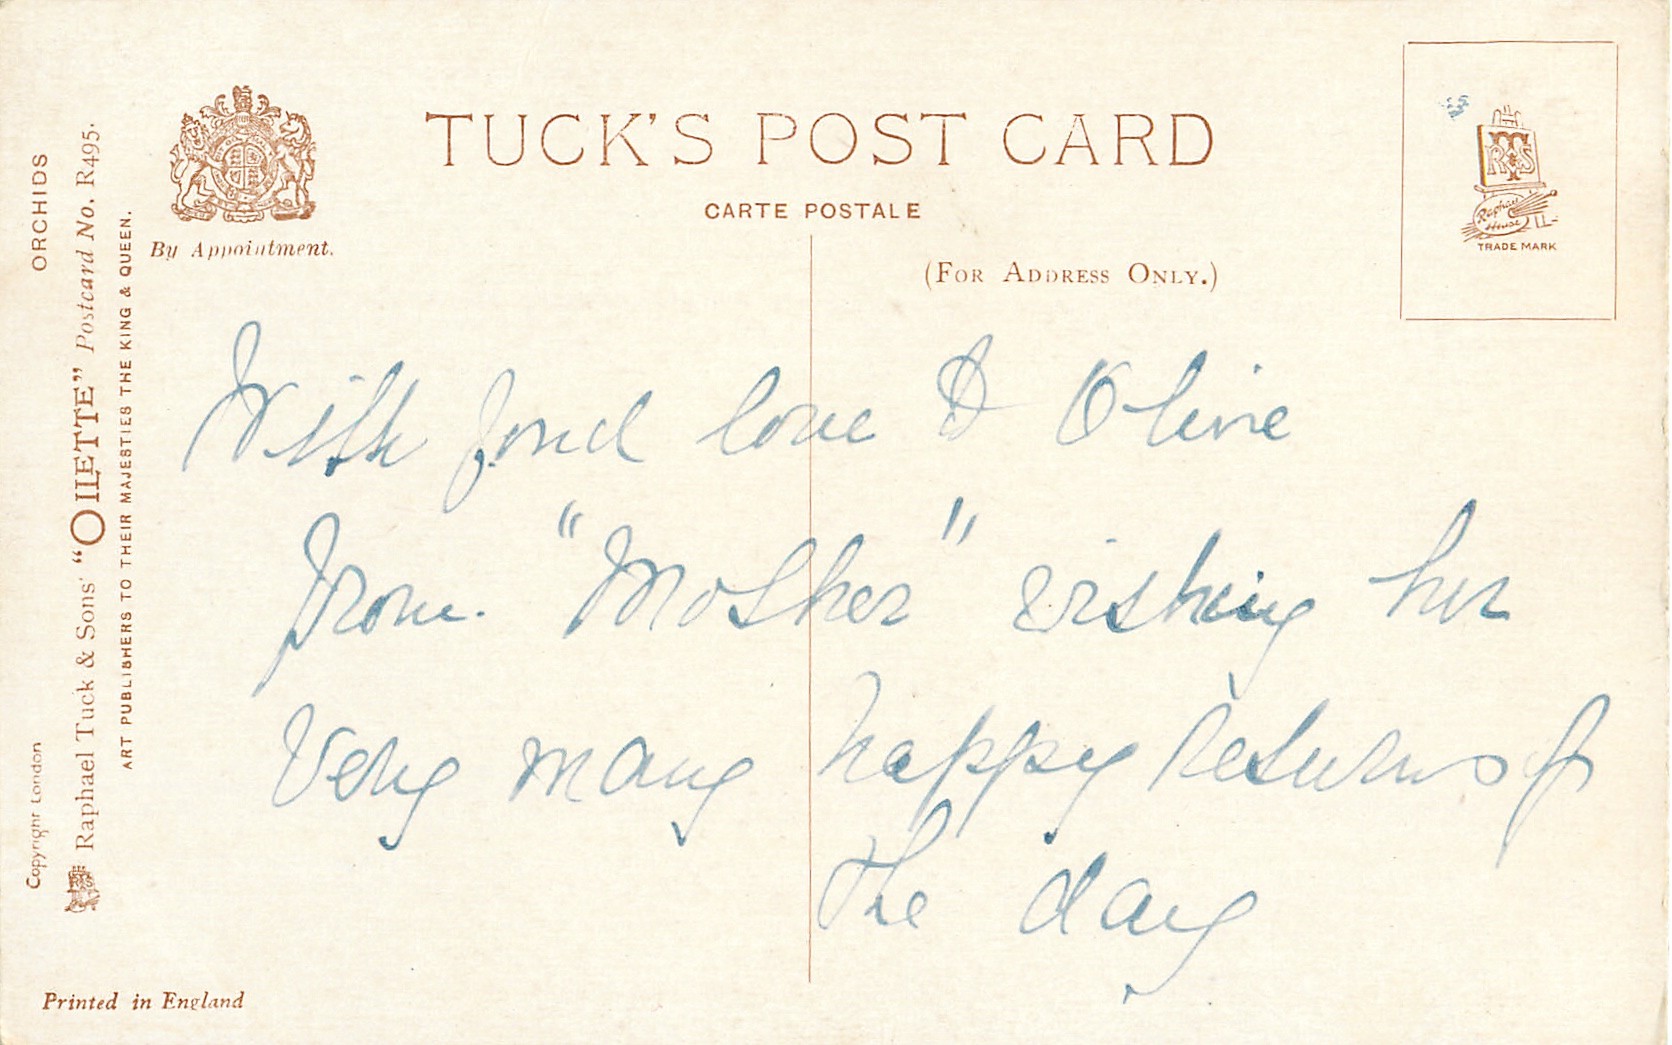 TUCK'S POST CARD
CARTE POSTALE
(FOR ADDRESS ONLY.)
By Appointment.
TRADE MARK
RTS
Raphael House
ORCHIDS
Raphael Tuck & Sons' "OILETTE" Postcard No. R495.
ART PUBLISHERS TO THEIR MAJESTIES THE KING & QUEEN.
Copyright London
Printed in England
With fond love to Olive
from. "Mother" wishing her
Very many happy returns of
the day